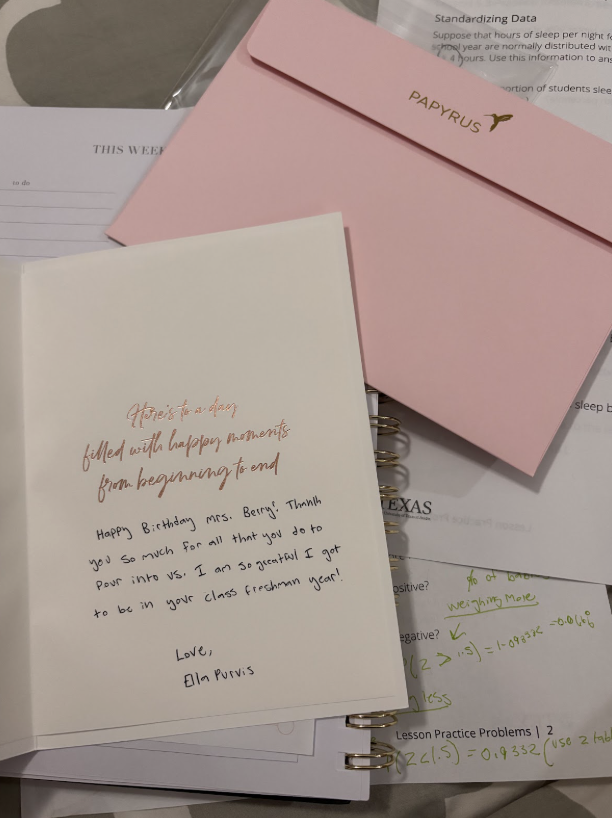 Standardizing Data
Suppose that hours of sleep per night f
school year are normally distributed wit
4 hours. Use this information to ans
ortion of students slee
PAPYRUS
THIS WEEK
to do
Here's to a day
filled with happy moments
from beginning to end
Happy Birthday Mrs. Berry! Thank
you so much for all that you do to
Pour into us. I am so greatful I got
to be in your class freshman year!
Love,
Ella Purvis
sleep b
EXAS
ositive?
% of
weighing more
egative?
(Z > 1.5) = 1-0.9332 = 0.0668
less
Lesson Practice Problems | 2
P(Z<1.5) = 0.9332 (use z tabl